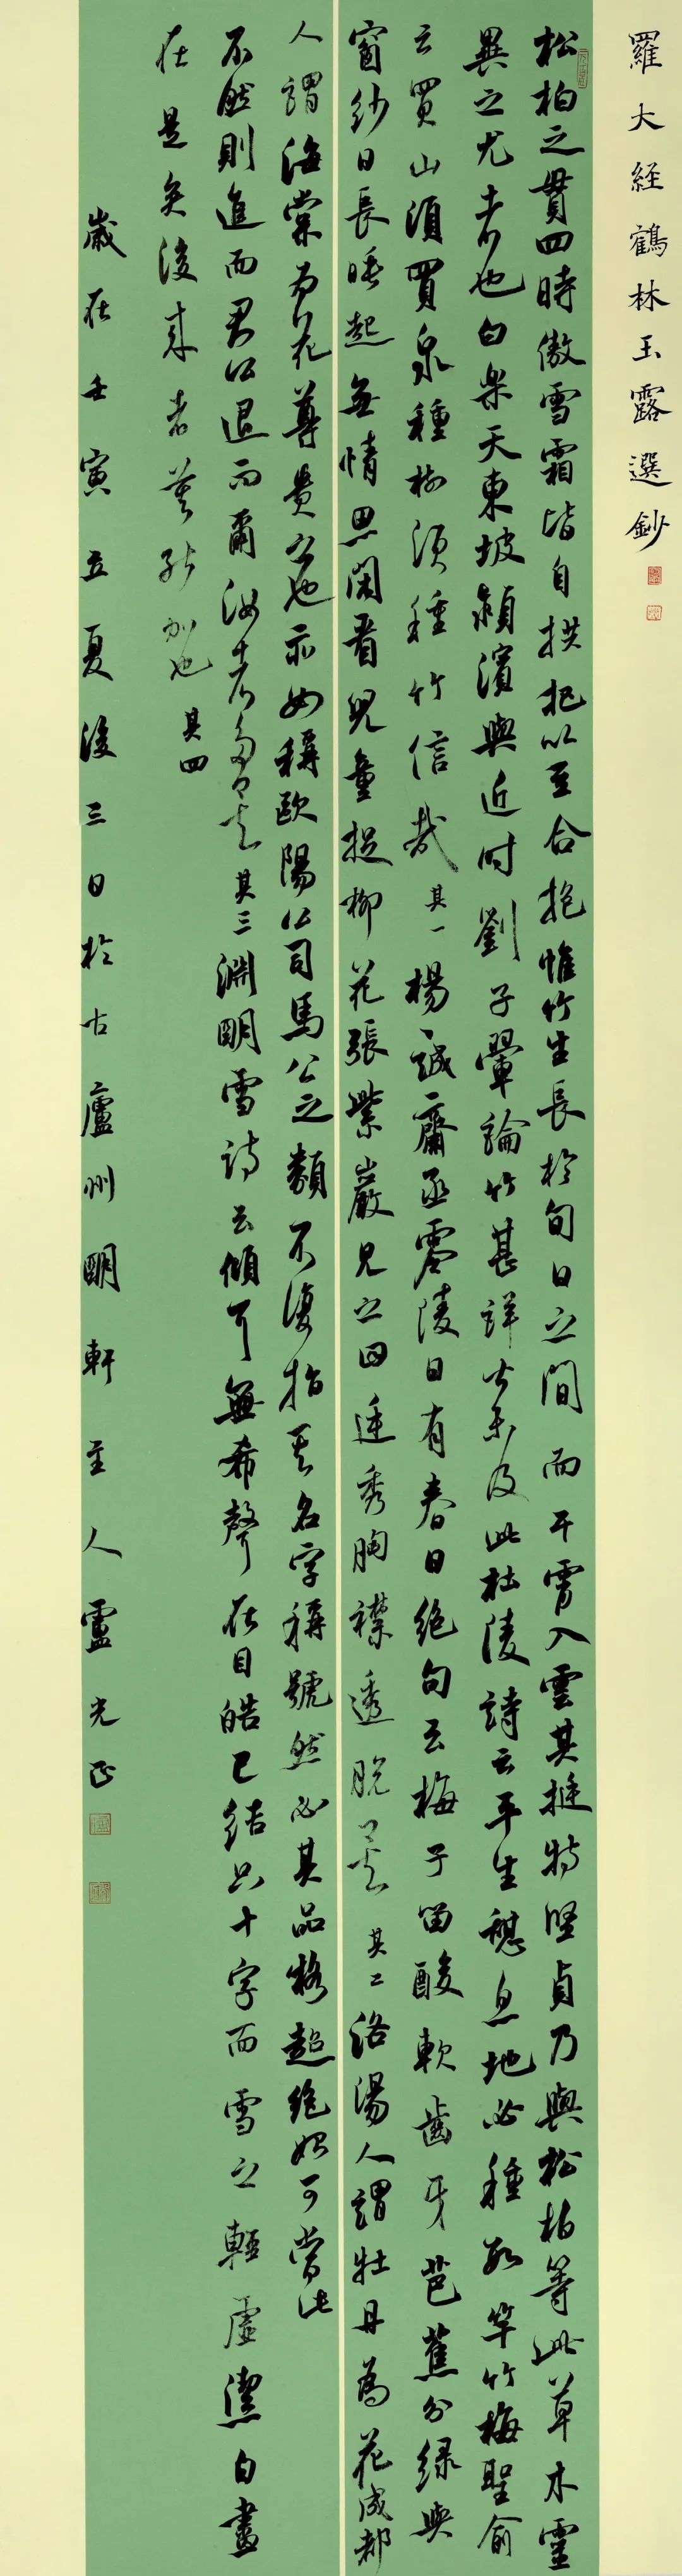 羅大経鶴林玉露選鈔
松柏之貫四時傲雪霜皆自拱把以至合抱惟竹生長於旬日之間而干霄入雲其挺特堅貞乃與松柏等此草木靈
異之尤者也白樂天東坡潁濱與近時劉子翬論竹甚詳皆未及此杜陵詩云平生憩息地必種數竿竹梅聖俞
云買山須買泉種樹須種竹信哉其一楊誠齋丞零陵日有春日絶句云梅子留酸軟齒牙芭蕉分緑與
窗紗日長睡起無情思閑看兒童捉柳花張紫巖見之曰廷秀胸襟透脫矣其二洛陽人謂牡丹為花成都
人謂海棠為花尊貴之也亦如稱歐陽公司馬公之類不復指其名字稱號然必其品格超絶始可當此
不然則進而君公退而爾汝者多矣其三淵明雪詩云傾耳無希聲在目皓已結只十字而雪之輕虛潔白盡
在是矣後來者莫能加也其四
歲在壬寅立夏後三日於古廬州明軒主人盧光正